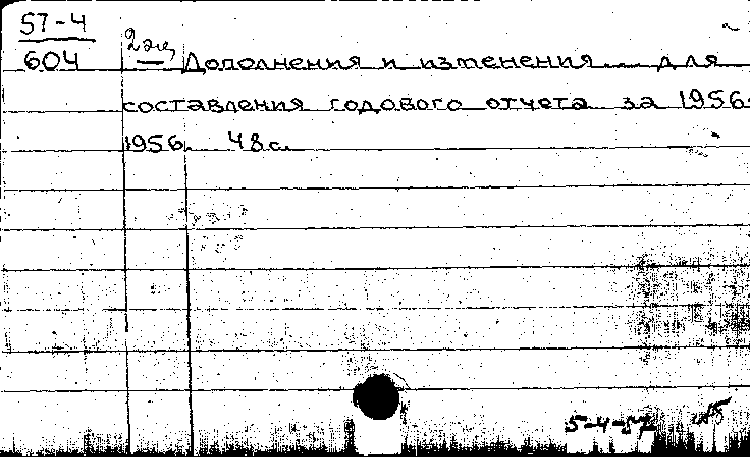 57-4
604
2 экз
Дополнения и изменения... для
составления годового отчета за 1956.
1956. 48с.
5-4-57